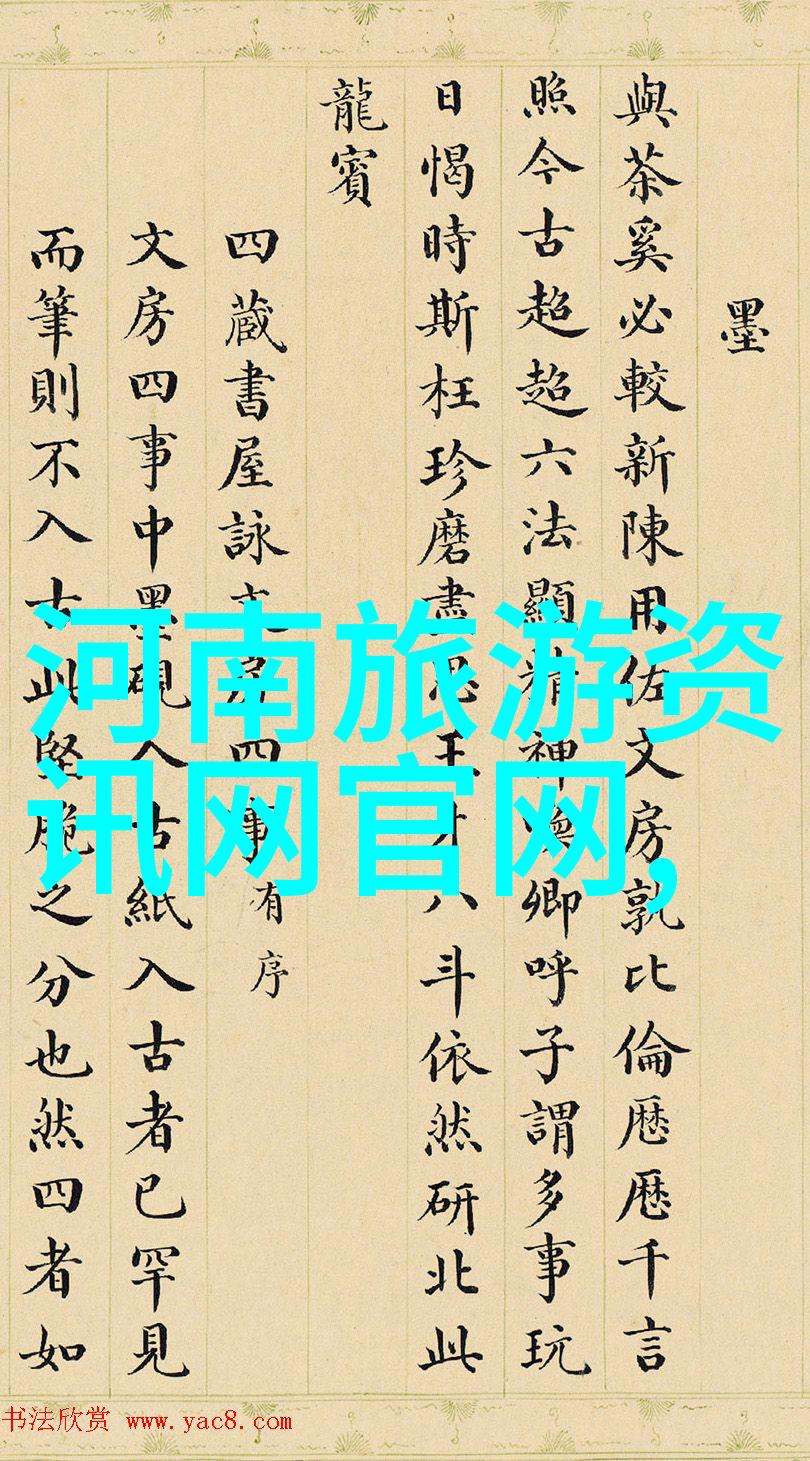 墨
與茶奚必較新陳用佐文房孰比倫歷歷千言
照今古超超六法顯精神喚卿呼子謂多事玩
日愒時斯枉珍磨盡思王才八斗依然研北此
龍賓
四蔵書屋詠文房四事有序
文房四事中墨硯入古紙入古者已罕見
而筆則不入古此堅脆之分也然四者如
河南旅游资
讯网官网,
书法欣赏 www.yac8.com